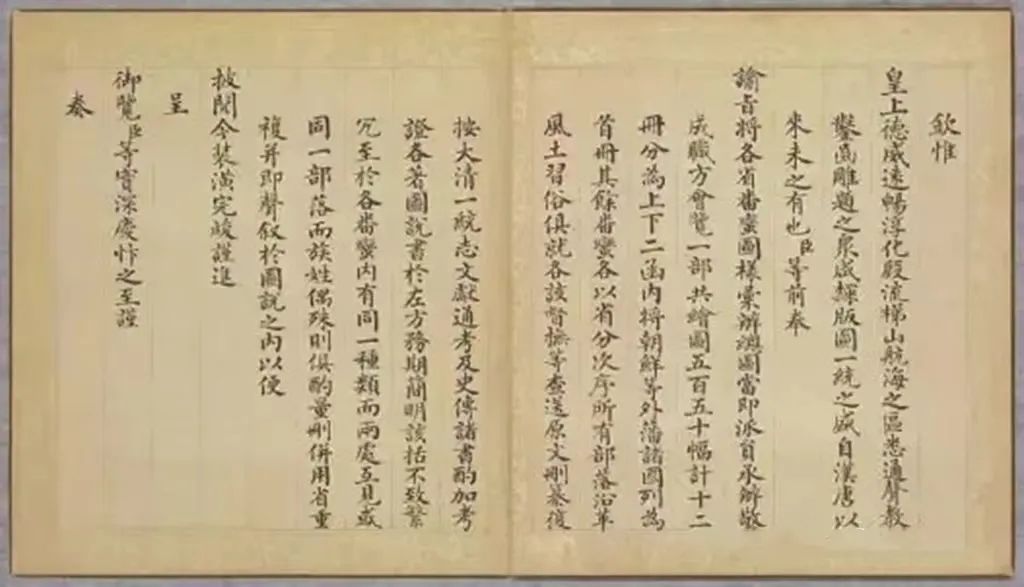 欽惟
皇上德威遠暢淳化殷流梯山航海之區悉通聲教
鑿齒雕題之泉咸隸版圖一統之盛自漢唐以
來未之有也臣等前奉
諭旨將各省番蠻圖樣彙辦潢圖當即派員承辦敬
成職方會覽一部共繪圖五百五十幅計十二
冊分為上下二函內將朝鮮等外藩諸國列為
首冊其餘番蠻各以省分次序所有部落沿革
風土習俗俱就各該督撫等查送原文刪纂復
按大清一統志文獻通考及史傳諸書酌加考
證各著圖說書於左方務期簡明該括不致繁
冗至於各番蠻內有同一種類而兩處互見或
同一部落而族姓偶殊則俱酌量刪併用省重
複并即聲叙於圖說之內以便
披閱今裝潢完竣謹進
呈
御覽臣等實深慶忭之至謹
奏